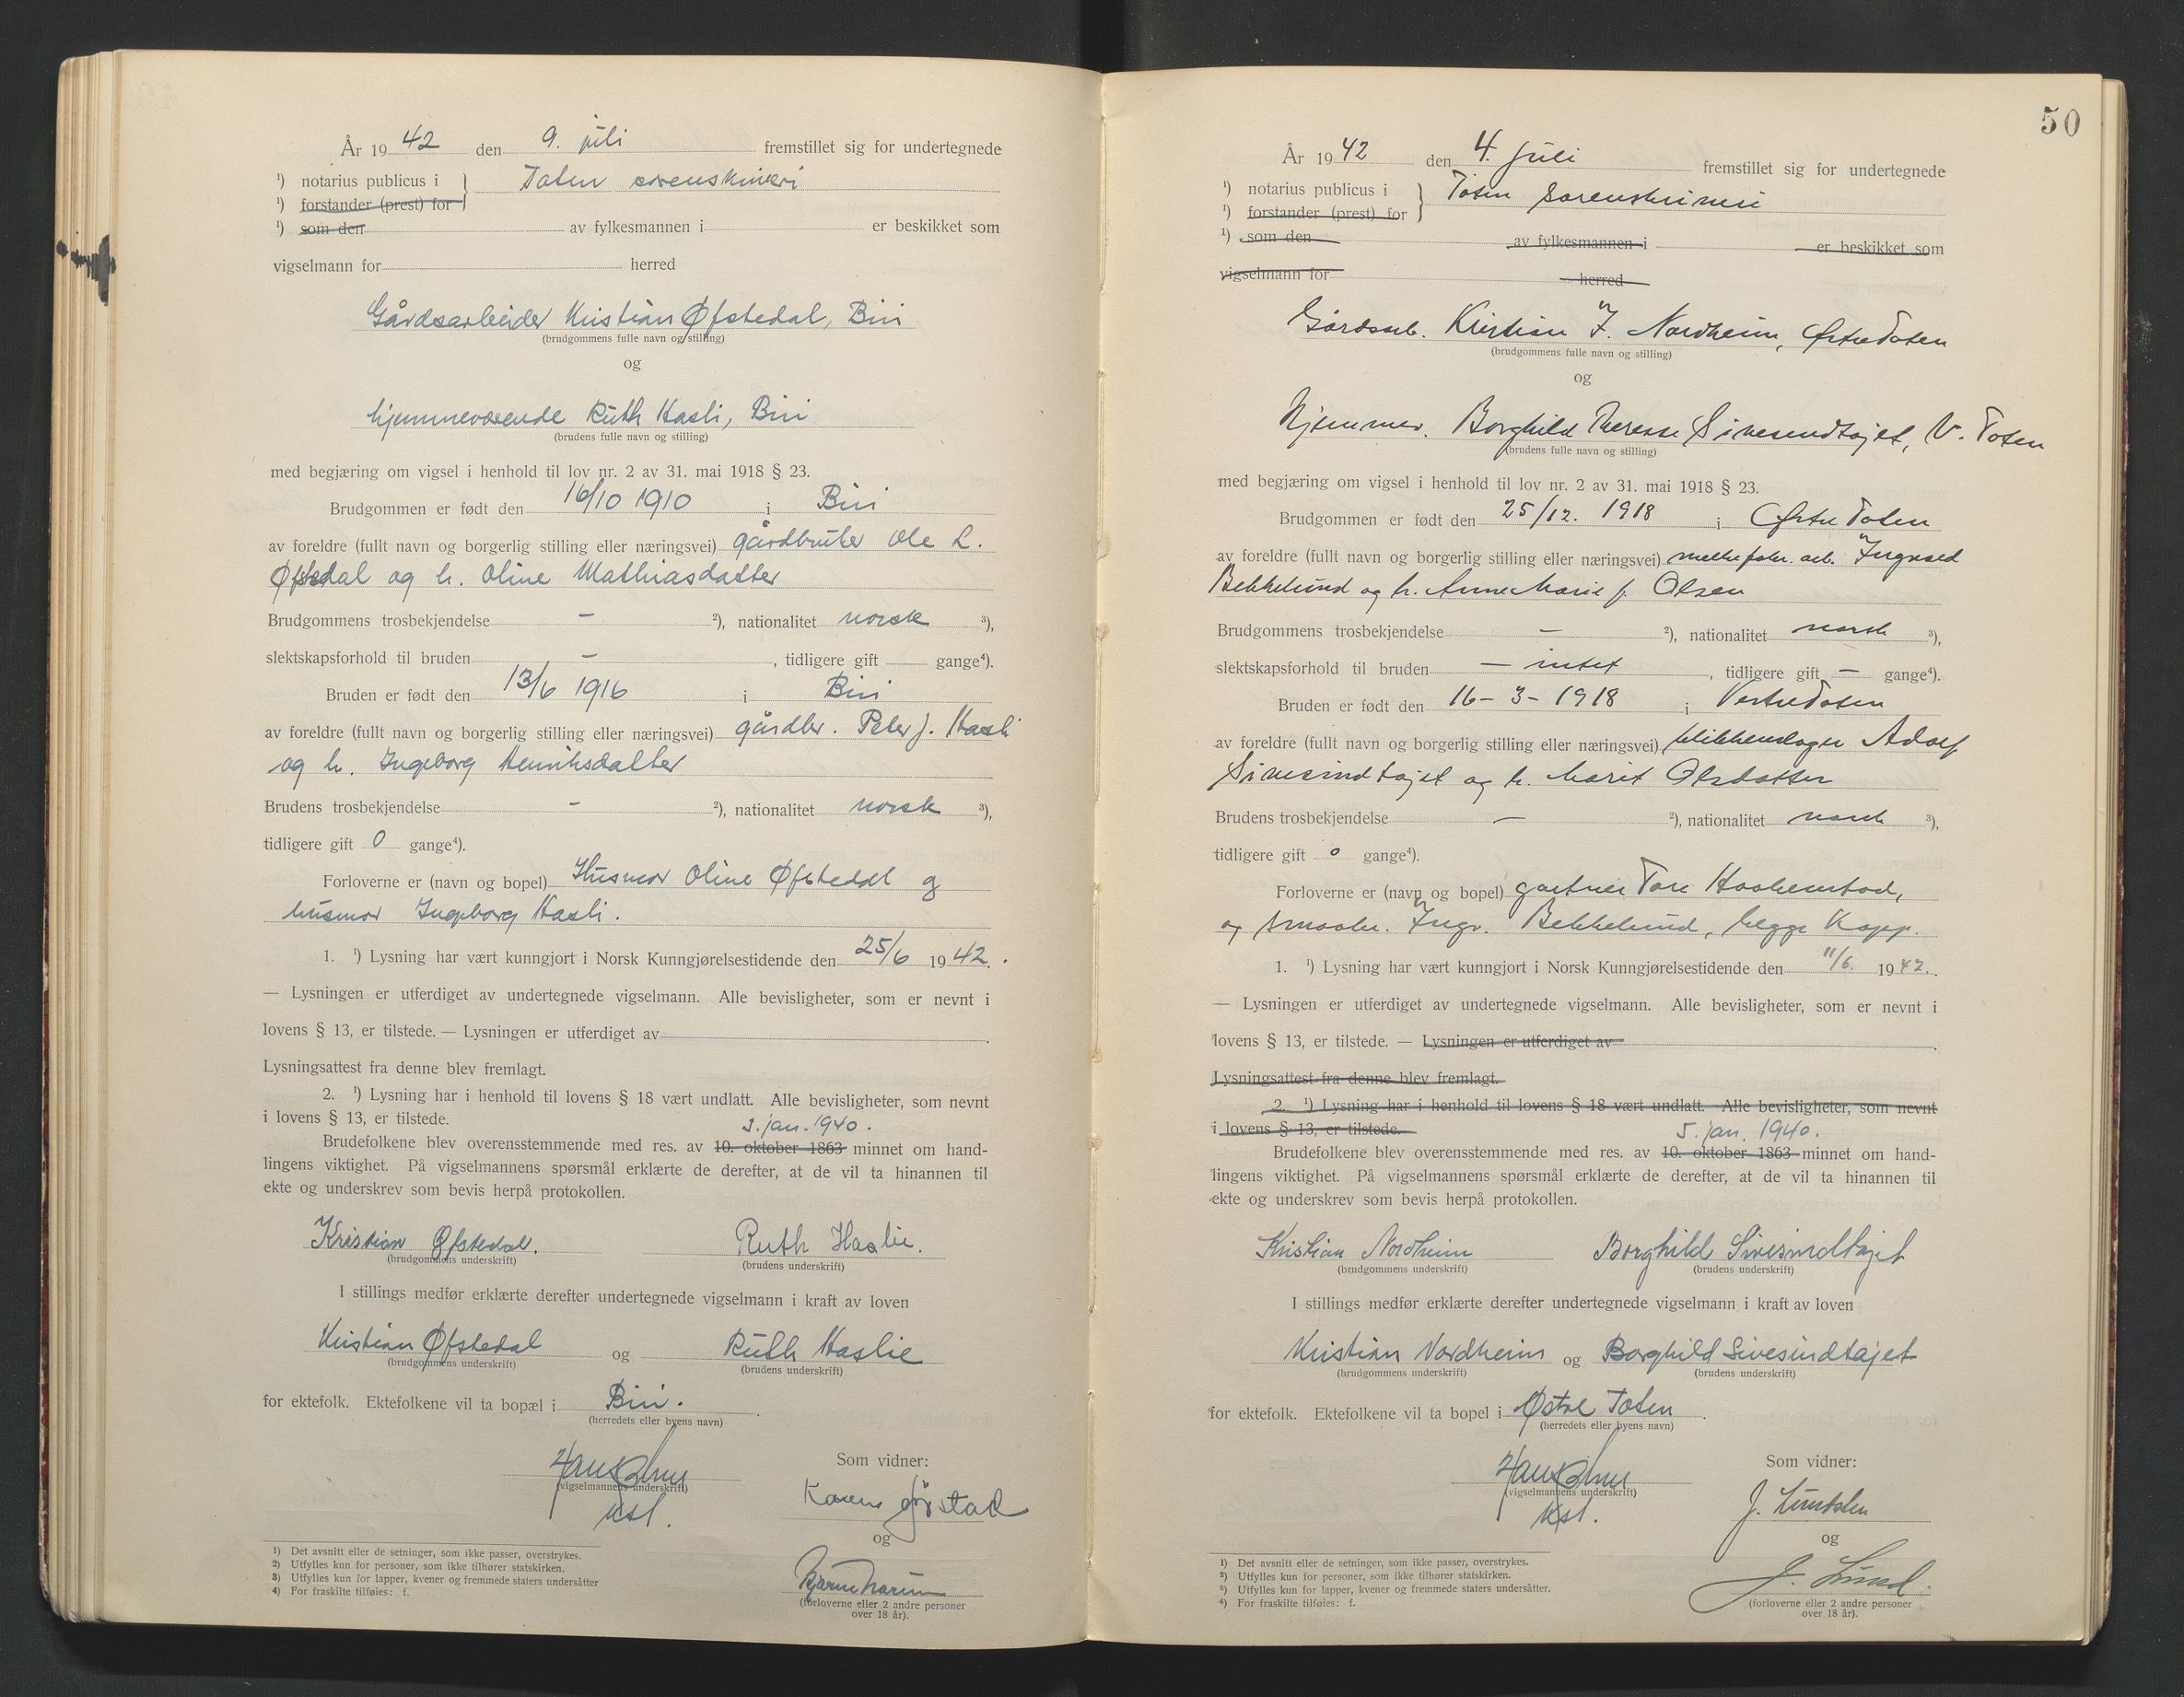 År 19 42 den 9. juli fremstillet sig for undertegnede
¹) notarius publicus i } Toten sorenskriveri
¹) forstander (prest) for
¹) som den av fylkesmannen i er beskikket som
vigselmann for herred
Gårdsarbeider Kristian Øfstedal, Biri
(brudgommens fulle navn og stilling)
og
hjemmeværende Ruth Hasli, Biri
(brudens fulle navn og stilling)
med begjæring om vigsel i henhold til lov nr. 2 av 31. mai 1918 § 23.
Brudgommen er født den 16/10 1910 i Biri
av foreldre (fullt navn og borgerlig stilling eller næringsvei) gårdbruker Ole L.
Øfstedal og h. Oline Mathiasdatter
Brudgommens trosbekjendelse - ²), nationalitet norsk ³),
slektskapsforhold til bruden - , tidligere gift gange⁴).
Bruden er født den 13/6 1916 i Biri
av foreldre (fullt navn og borgerlig stilling eller næringsvei) gårdbr. Peter J. Hasli
og h. Ingeborg Henriksdatter
Brudens trosbekjendelse - ²), nationalitet norsk ³),
tidligere gift 0 gange⁴).
Forloverne er (navn og bopel) Husmor Oline Øfstedal og
husmor Ingeborg Hasli.
1. ¹) Lysning har vært kunngjort i Norsk Kunngjørelsestidende den 25/6 1942.
— Lysningen er utferdiget av undertegnede vigselmann. Alle bevisligheter, som er nevnt i
lovens § 13, er tilstede. — Lysningen er utferdiget av
Lysningsattest fra denne blev fremlagt.
2. ¹) Lysning har i henhold til lovens § 18 vært undlatt. Alle bevisligheter, som nevnt
i lovens § 13, er tilstede. 3. jan. 1940.
Brudefolkene blev overensstemmende med res. av 10. oktober 1863 minnet om hand-
lingens viktighet. På vigselmannens spørsmål erklærte de derefter, at de vil ta hinannen til
ekte og underskrev som bevis herpå protokollen.
Kristian Øfstedal. Ruth Haslie.
(brudgommens underskrift) (brudens underskrift)
I stillings medfør erklærte derefter undertegnede vigselmann i kraft av loven
Kristian Øfstedal og Ruth Haslie
(brudgommens underskrift) (brudens underskrift)
for ektefolk. Ektefolkene vil ta bopæl i Biri.
(herredets eller byens navn)
Som vidner:
(vigselmannens underskrift)
kst.
og
(forloverne eller 2 andre personer
over 18 år).
1) Det avsnitt eller de setninger, som ikke passer, overstrykes.
2) Utfylles kun for personer, som ikke tilhører statskirken.
3) Utfylles kun for lapper, kvener og fremmede staters undersåtter
4) For fraskilte tilføies: f.
50
År 19 42 den 4. juli fremstillet sig for undertegnede
¹) notarius publicus i } Toten sorenskriveri
¹) forstander (prest) for
¹) som den av fylkesmannen i er beskikket som
vigselmann for herred
Gårdsarb. Kristian I. Nordheim, Østre Toten
(brudgommens fulle navn og stilling)
og
Hjemmev. Borghild Therese Sivesindtajet, V. Toten
(brudens fulle navn og stilling)
med begjæring om vigsel i henhold til lov nr. 2 av 31. mai 1918 § 23.
Brudgommen er født den 25/12. 1918 i Østre Toten
av foreldre (fullt navn og borgerlig stilling eller næringsvei) melkefabr. arb. Ingvald
Bekkelund og h. Anne Marie f. Olsen
Brudgommens trosbekjendelse — ²), nationalitet norsk ³),
slektskapsforhold til bruden — intet , tidligere gift — gange⁴).
Bruden er født den 16-3-1918 i Vestre Toten
av foreldre (fullt navn og borgerlig stilling eller næringsvei) blikkenslager Adolf
Sivesindtajet og h. Marit Olsdatter
Brudens trosbekjendelse — ²), nationalitet norsk ³),
tidligere gift 0 gange⁴).
Forloverne er (navn og bopel) gartner Tore Haakenstad,
og småbr. Ingv. Bekkelund, begge Kapp.
1. ¹) Lysning har vært kunngjort i Norsk Kunngjørelsestidende den 11/6. 1942.
— Lysningen er utferdiget av undertegnede vigselmann. Alle bevisligheter, som er nevnt i
lovens § 13, er tilstede. — Lysningen er utferdiget av
Lysningsattest fra denne blev fremlagt.
2. ¹) Lysning har i henhold til lovens § 18 vært undlatt. Alle bevisligheter, som nevnt
i lovens § 13, er tilstede. 5. jan. 1940.
Brudefolkene blev overensstemmende med res. av 10. oktober 1863 minnet om hand-
lingens viktighet. På vigselmannens spørsmål erklærte de derefter, at de vil ta hinannen til
ekte og underskrev som bevis herpå protokollen.
Kristian Nordheim Borghild Sivesindtajet
(brudgommens underskrift) (brudens underskrift)
I stillings medfør erklærte derefter undertegnede vigselmann i kraft av loven
Kristian Nordheim og Borghild Sivesindtajet
(brudgommens underskrift) (brudens underskrift)
for ektefolk. Ektefolkene vil ta bopel i Østre Toten.
(herredets eller byens navn)
Som vidner:
(vigselmannens underskrift)
kst.
og
J. Lund.
(forloverne eller 2 andre personer
over 18 år).
1) Det avsnitt eller de setninger, som ikke passer, overstrykes.
2) Utfylles kun for personer, som ikke tilhører statskirken.
3) Utfylles kun for lapper, kvener og fremmede staters undersåtter.
4) For fraskilte tilføies: f.